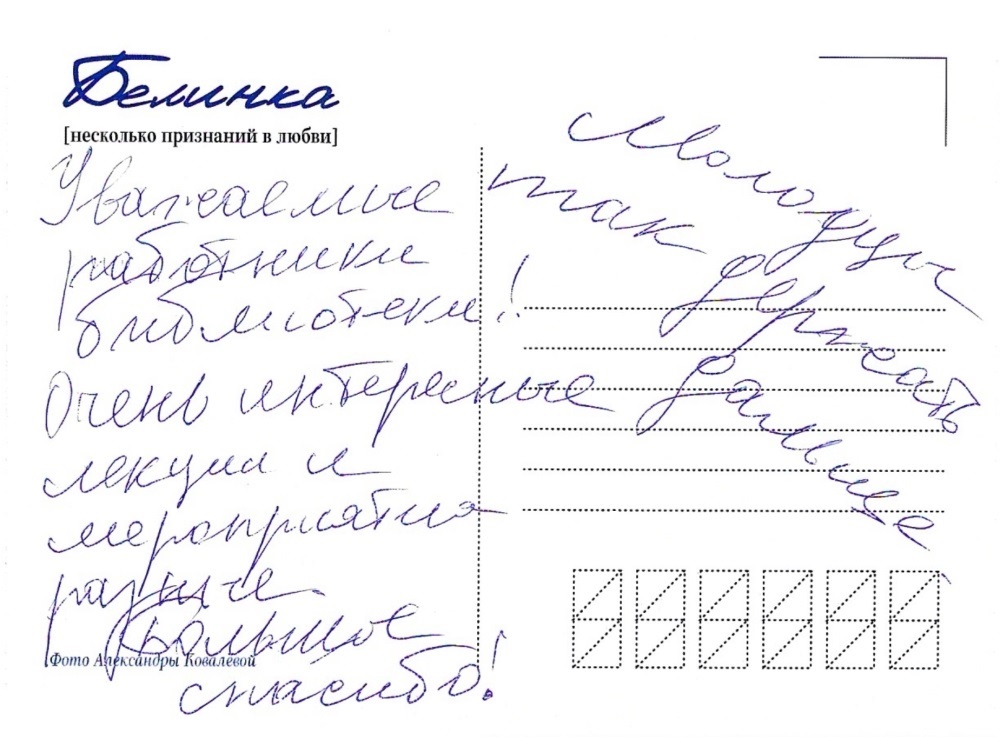 Белинка
[несколько признаний в любви]
Уважаемые
работники
библиотеки!
Очень интересные
лекции и
мероприятия
разные.
Большое
спасибо!
Фото Александры Ковалевой
Молодцы
так держать
дальше